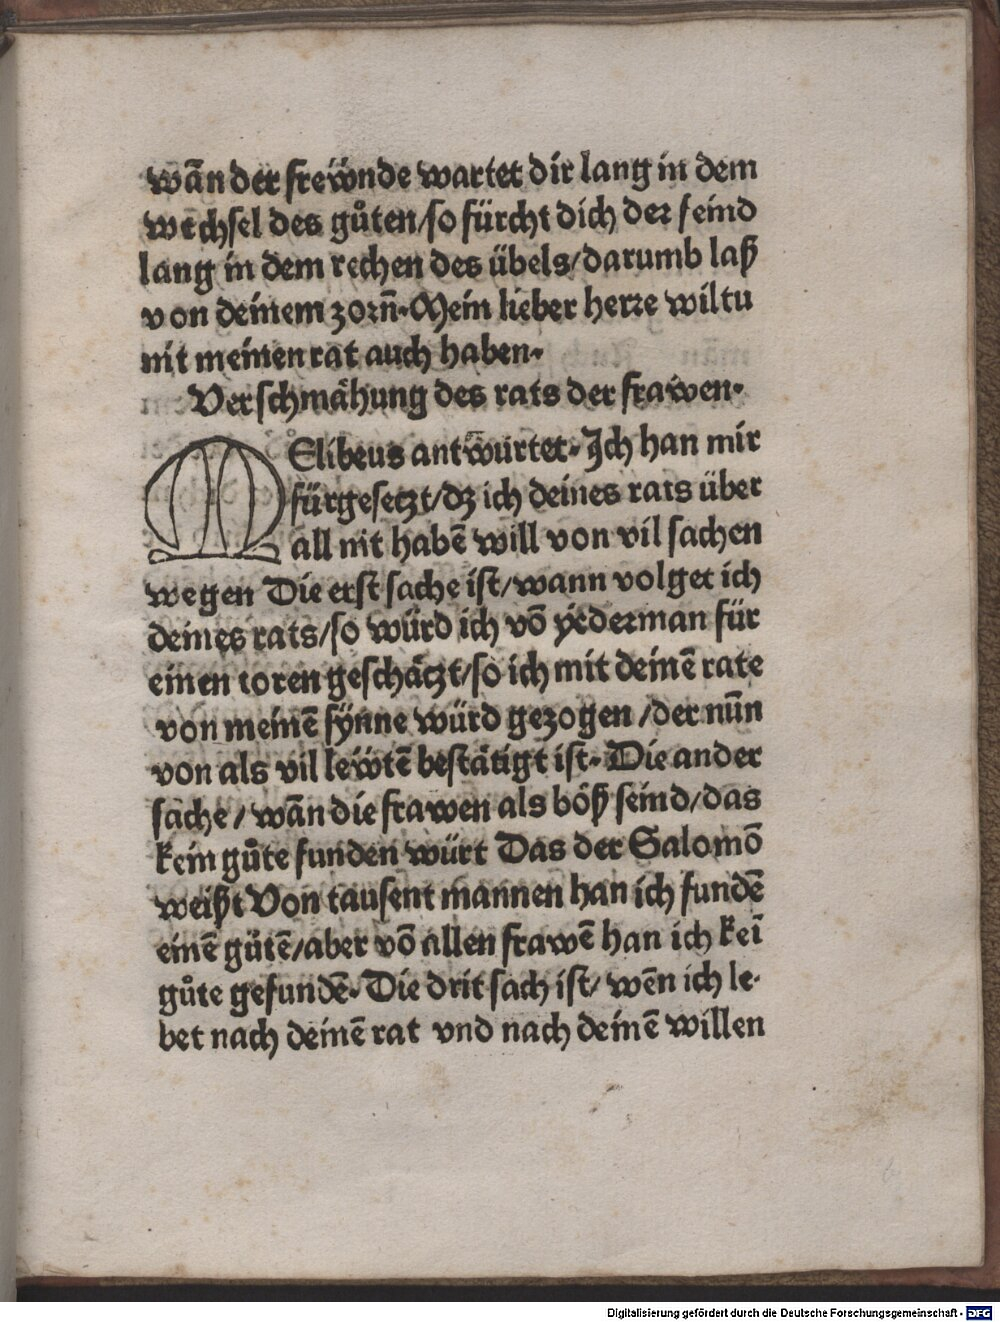 wān der frewͤnde wartet dir lang in dem
wechsel des gůten/so fürcht dich der feind
lang in dem rechen des übels/darumb laß
von deinem zorn̄·Mein lieber herre wiltu
nit meinen rat auch haben·
Verschmaͤhung des rats der frawen·
MElibeus antwürtet·Ich han mir
fürgesetzt/dz ich deines rats über
all nit habē will von vil sachen
wegen Die erst sache ist/wann volget ich
deines rats/so würd ich vō yederman für
einen toren geschaͤtzt/so ich mit deinē rate
von meinē synne würd gezogen/der nūn
von als vil lewͤtē bestaͤtigt ist·Die ander
sache/wān die frawen als boͤß seind/das
kein gůte funden würt Das der Salomō
weißt Von tausent mannen han ich fundē
einē gůtē/aber vō allen frawē han ich keī
gůte gefundē·Die drit sach ist/wēn ich le-
bet nach deinē rat vnd nach deinē willen
Digitalisierung gefördert durch die Deutsche Forschungsgemeinschaft - DFG